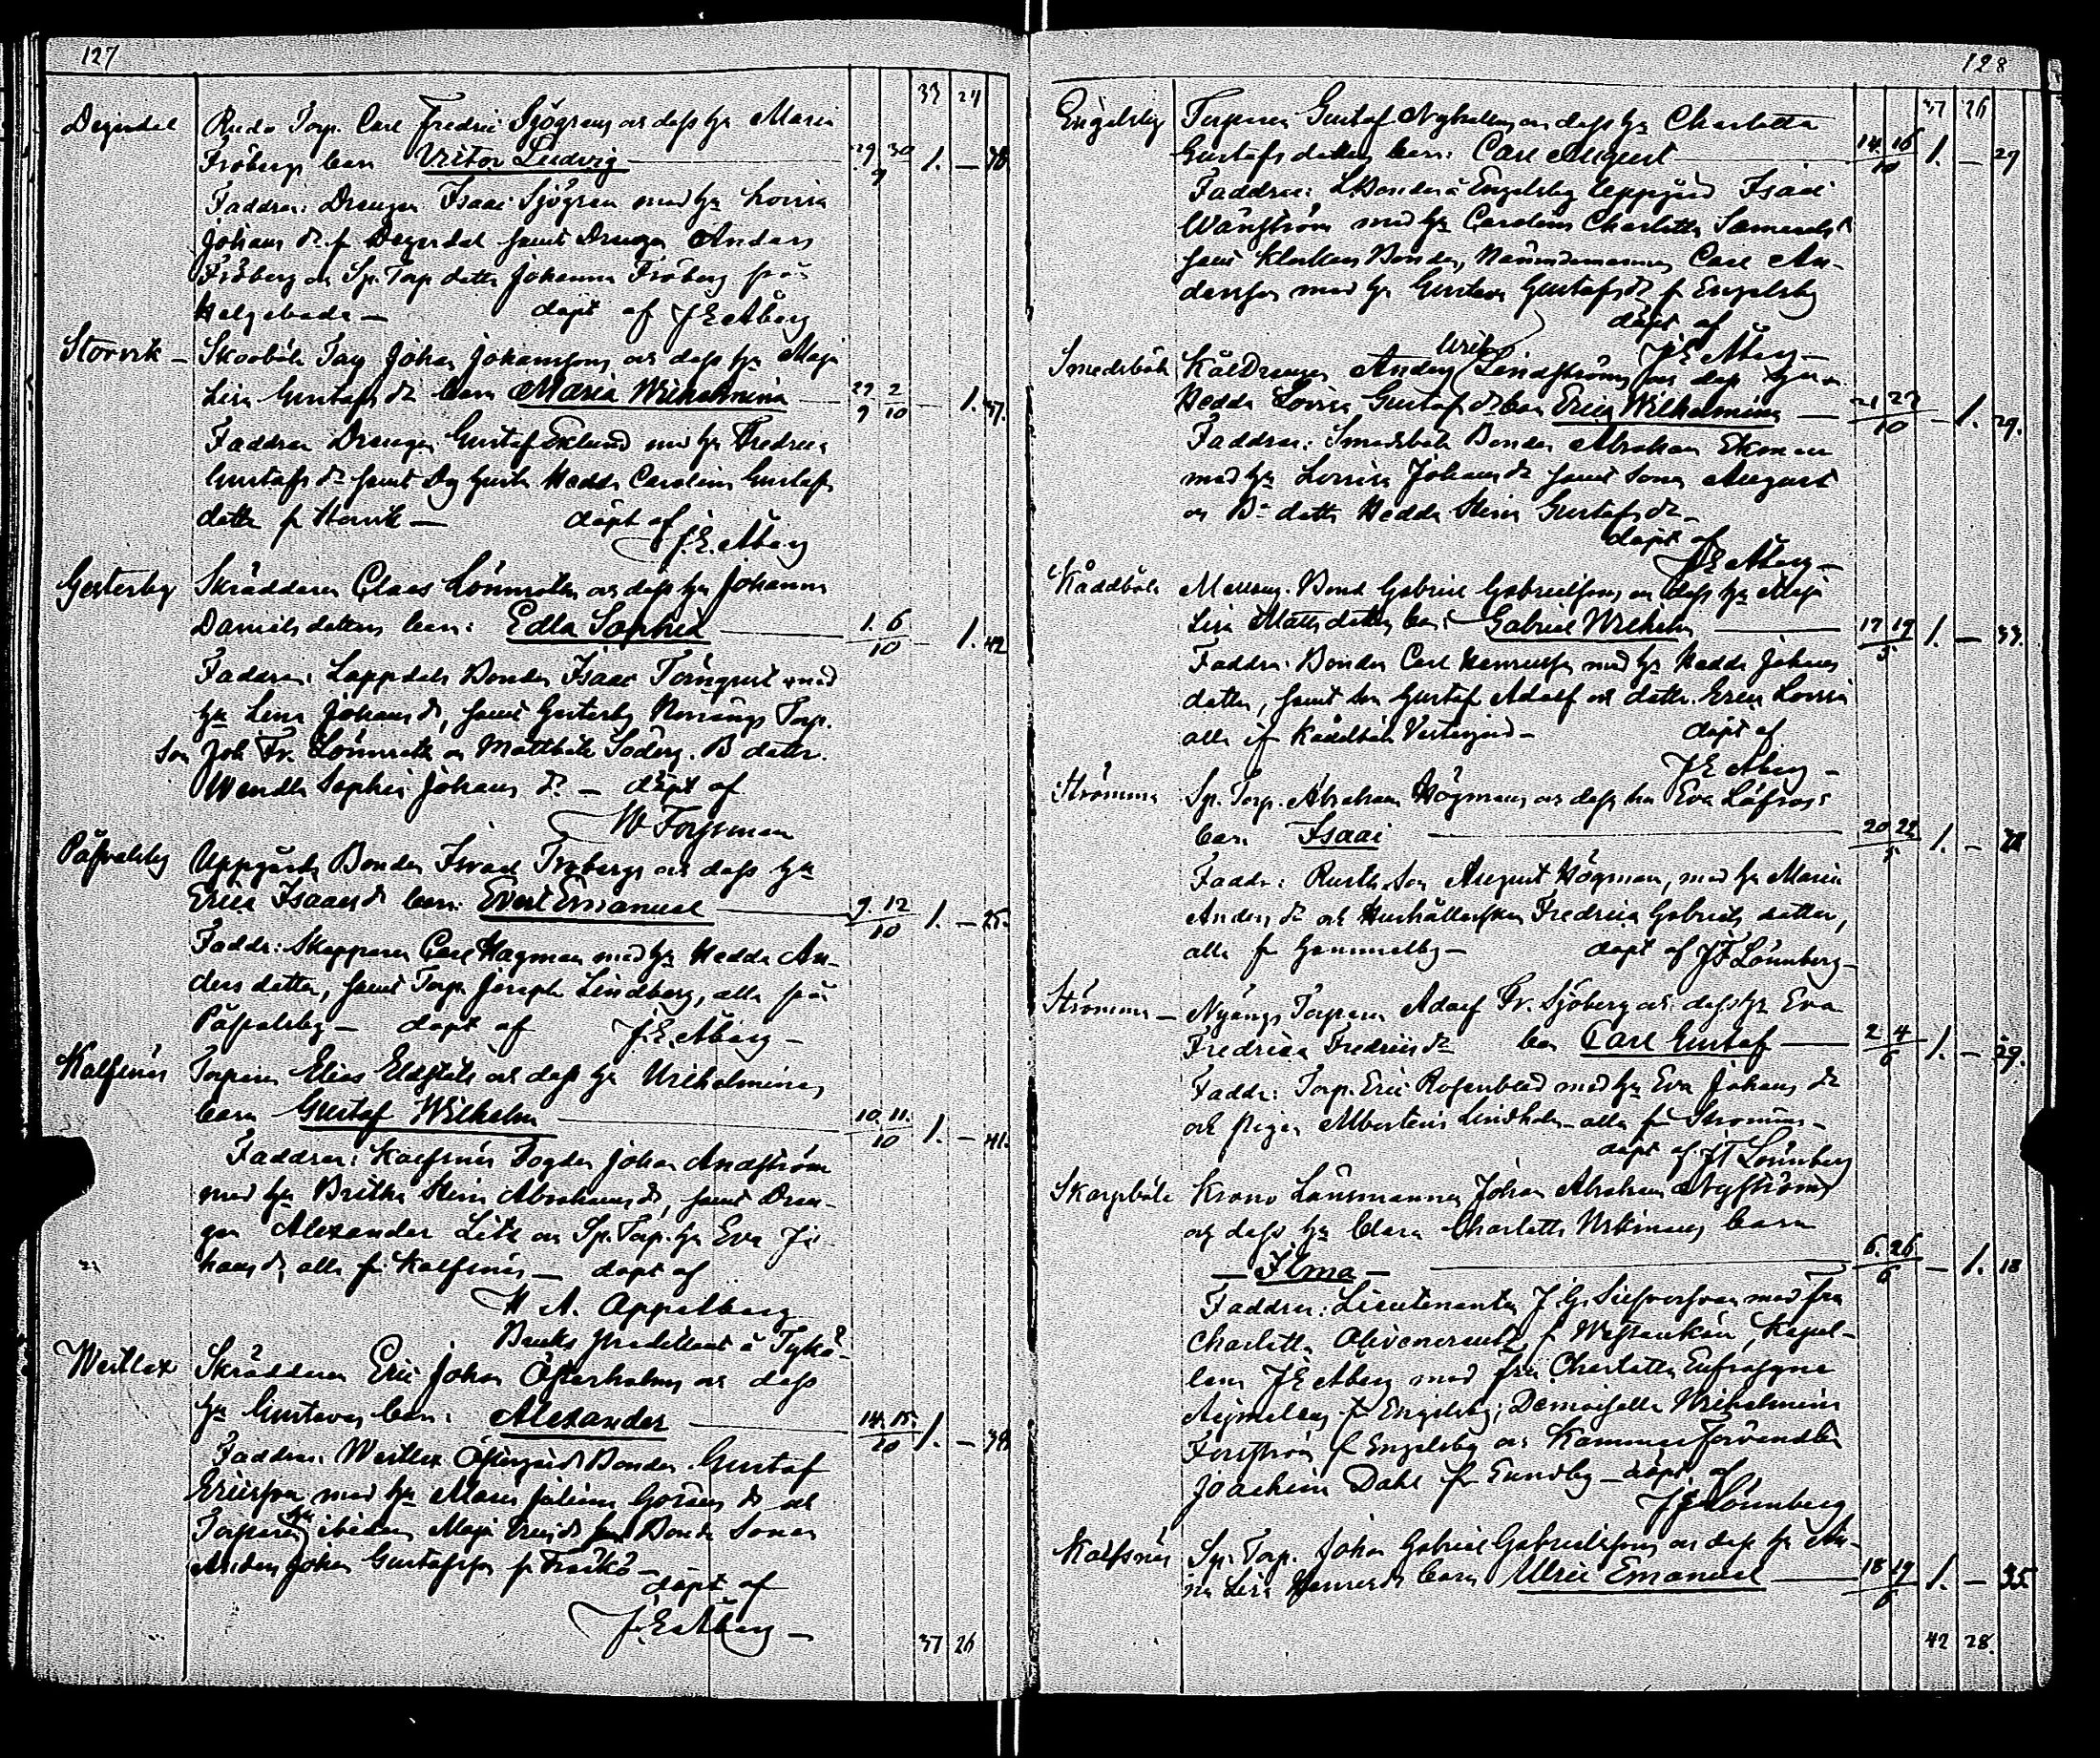 127
33 24
Degerdal Rudo Torp. Carl Fredric Sjögrens och dess hu Maria
Fröbergs barn Victor Ludvig 29 30 / 9 1. — 38.
Faddrar: Drengen Isaac Sjögren med hu Lovisa
Johans dr fr Degerdal samt Drengen Anders
Fröberg och Sp. Torp dotter Johanna Fröberg från
Helgeboda — döpt af J E Åberg
Storvik — Skoböle Torp Johan Johanssons och dess hu Maja
Lisa Gustafs dr barn Maria Wilhelmina 29 2 / 9 10 — 1. 37.
Faddrar Drengen Gustaf Eklund med hu Fredrica
Gustafs dr samt Hedda Carolina Gustafs
dotter fr Storvik — döpt af
J. E. Åberg
Gesterby Skräddaren Claes Lönnroths och dess hu Johanna
Daniels dotters barn: Edla Sophia 1. 6 / 10 — 1. 42
Faddrar: Lappdals Bonden Isaac Törnqvist med
hu Lena Johans dr, samt Gesterby Torp.
Son Joh. Fr. Lönnroth och Mattböle Söderg. B dotter
Wendla Sophia Johans dr — döpt af
W Forssman
Påfvalsby Uppgårds Bonden Israel Frobergs och dess hu
Erica Isaacs dr barn: Evert Emanuel 9. 12 / 10 1. — 25.
Faddr: Skepparen Carl Hagman med hu Hedda An-
ders dotter, samt Torp. Joseph Lindberg, alla från
Påfvalsby — döpt af J. E. Åberg —
Kalfsnäs Torparen Elias Eldståls och dess hu Wilhelminas
barn Gustaf Wilhelm 10. 11. / 10 1. — 41.
Faddrar: Kalfsnäs Fogden Johan Andström
med hu Britha Stina Abrahams dr, samt Dren-
gen Alexander Lith och Sp. Torp. hu Eva Jo-
hans dr, alla fr. Kalfsnäs — döpt af
H A. Appelberg
Bruks predikant å Tykö
Westlax Skräddaren Eric Johan Österholms och dess
hu Gustavas barn: Alexander 14. 15. / 10 1. — 38
Faddrar: Westlax Östergårds Bonden Gustaf
Ericsson med hu Maria Juliana Görans dr och
Torparen hu ibidem Maja Erics dr samt Bonde Sonen
Anders Johan Gustafsson fr Fräkö —
döpt af
J. E Åberg —
37 26
128
37 26
Engelsby Torparen Gustaf Nyholms och dess hu Charlotta
Gustafs dotters barn: Carl August 14. 16 / 10 1. — 29
Faddrar: Bonden å Engelsby Uppgård Isaac
Wänström med hu Carolina Charlotta Samuels dr
samt Klockars Bonden, Nämndemannen Carl An-
dersson med hu Gustava Gustafs dr fr Engelsby
döpt af
J E Åberg —
Smedsböle Kåldrengen Anders Ulric Lindströms och dess hu
Hedda Lovisa Gustafs dr barn Erica Wilhelmina 21 22 / 10 — 1. 29.
Faddrar: Smedsböle Bonden Abraham Ekman
med hu Lovisa Johans dr samt Sonen August
och B: dotter Hedda Stina Gustafs dr —
döpt af
J E Åberg —
Kåddböle Bond Gabriel Gabrielssons och dess hu Maja
Lisa Matts dotters barn Gabriel Wilhelm 17 19 / 5 1. — 33.
Faddr: Bonden Carl Henricsson med hu Hedda Johans
dotter, samt Son Gustaf Adolf och dotter Erica Lovisa
alla ifr Kåddböle Vestergård — döpt af
J E Åberg —
Strömma Sp. Torp. Abraham Högmans och dess hu Eva Löfroos
barn Isaac 20 22 / 5 1. —
Faddr: Rusth. Son August Högman, med hu Maria
Anders dr och Hushållerskan Fredrica Gabriels dotter,
alla fr Gammelby — döpt af J F Lönnberg —
Strömma — Nyängs Torparen Adolf Fr. Sjöbergs och dess hu Eva
Fredrica Fredrics dr barn Carl Gustaf 2 4 / 6 1. — 29.
Faddr: Torp. Eric Rosenblad med hu Eva Johans dr
och Pigan Albertina Lindholm — alla fr Strömma —
döpt af J F Lönnberg
Skarpböle Krono Länsmannen Johan Abraham Nyströms
och dess hu Clara Charlotta Wikmans barn
— Ilma — 6. 26 / 6 — 1. 18
Faddrar: Lieutenanten J. G. Silfversvan med fru
Charlotta Olivencreutz fr Westankärr, Kapel-
lan J E Åberg med fru Charlotta Eufrosyne
Aejmelæus fr Engelsby, Demoiselle Wilhelmina
Forsström fr Engelsby och Kammarförvandten
Joachim Dahl fr Sundby — döpt af
J F Lönnberg
Kalfsnäs Sp. Torp. Johan Gabriel Gabrielssons och dess hu An-
na Lisa Henrics dr barn Ulric Emanuel 18 19 / 6 1. — 35
42 28.